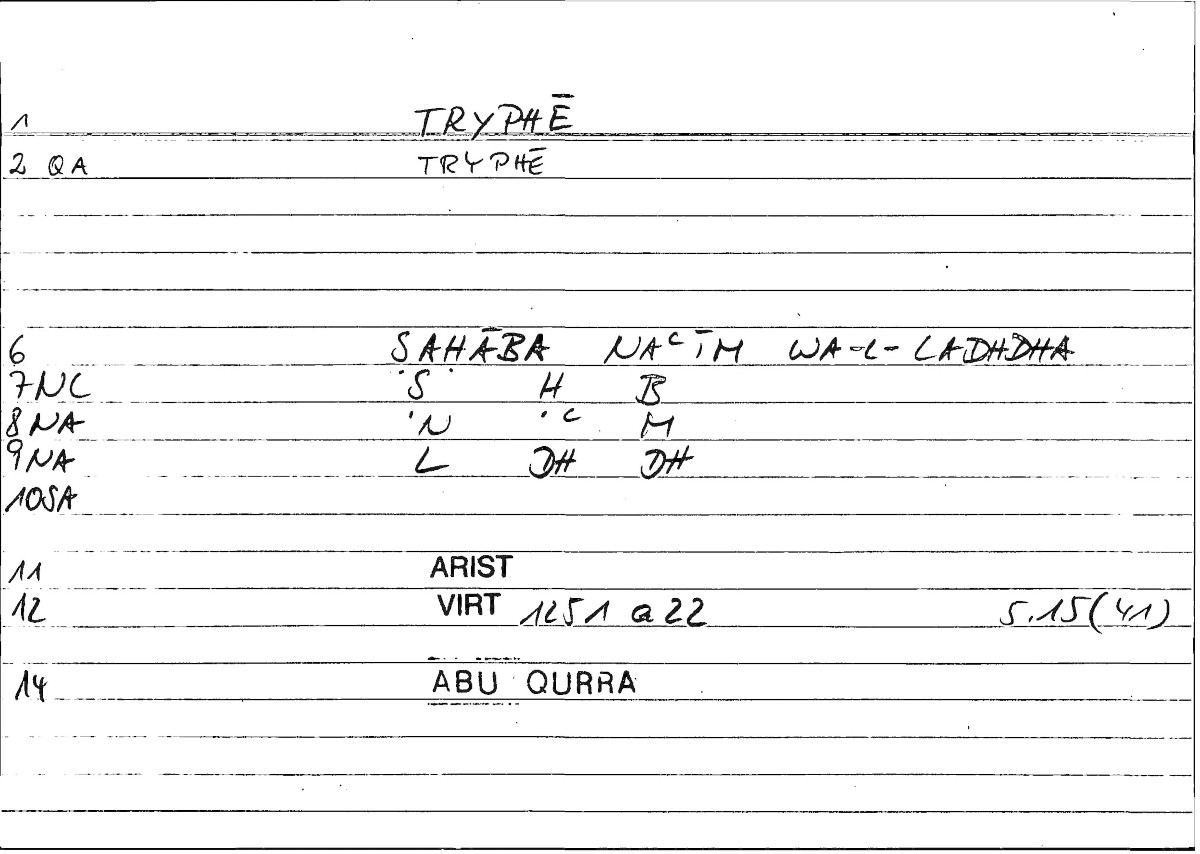 1 TRYPHĒ
2 QA TRYPHĒ
6 SAHĀBA NAᶜĪM WA-L-LADHDHA
7NC S H B
8NA N ᶜ M
9NA L DH DH
10SA
11 ARIST
12 VIRT 1251 a 22 S.15(41)
14 ABU QURRA